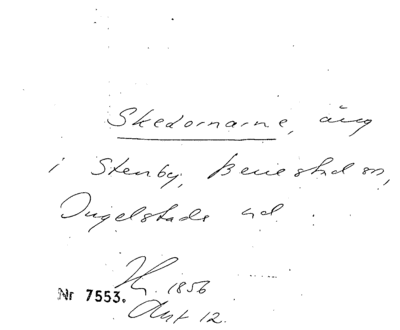 Skedornarne, äng
i Stenby, Benestad sn,
Ingelstads hd.
1856
Nr 7553.
Akt 12.